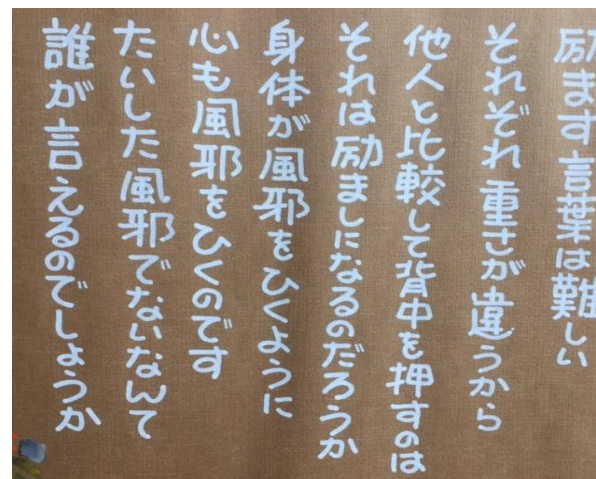 励ます言葉は難しい
それぞれ重さが違うから
他人と比較して背中を押すのは
それは励ましになるのだろうか
身体が風邪をひくように
心も風邪をひくのです
たいした風邪でないなんて
誰が言えるのでしょうか